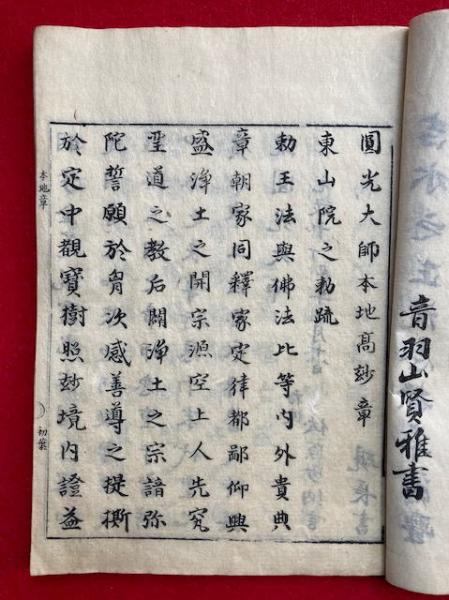 音羽山賢雅書
圓光大師本地高玅章
東山院之勅疏
勅王法與佛法比等内外貴典
章朝家同釋家定律都鄙仰興
盛淨土之開宗源空上人先究
聖道之教后闢淨土之宗諳弥
陀誓願於胷次感善導之提撕
於定中觀寶樹照玅境内證益
本地章
初葉